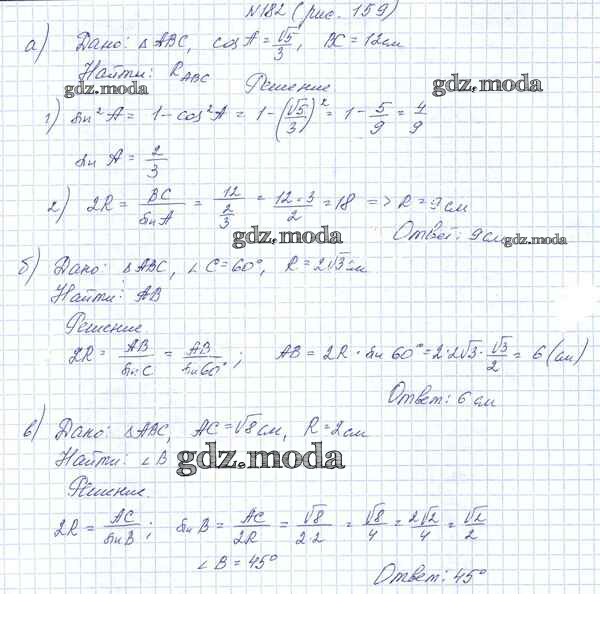 N182 (рис. 159)
а) Дано: △ABC, cos A = √5/3, BC = 12см
Найти: R_ABC
gdz.moda
gdz.moda
Решение
1) sin²A = 1 - cos²A = 1 - (√5/3)² = 1 - 5/9 = 4/9
sin A = 2/3
2) 2R = BC/sinA = 12/(2/3) = 12·3/2 = 18 => R = 9см
gdz.moda
Ответ: 9см
gdz.moda
б) Дано: △ABC, ∠C = 60°, R = 2√3см
Найти: AB
Решение
2R = AB/sinC = AB/sin60°; AB = 2R · sin 60° = 2·2√3·√3/2 = 6 (см)
Ответ: 6 см
в) Дано: △ABC, AC = √8см, R = 2см
Найти: ∠B
gdz.moda
Решение.
2R = AC/sinB; sinB = AC/2R = √8/2·2 = √8/4 = 2√2/4 = √2/2
∠B = 45°
Ответ: 45°